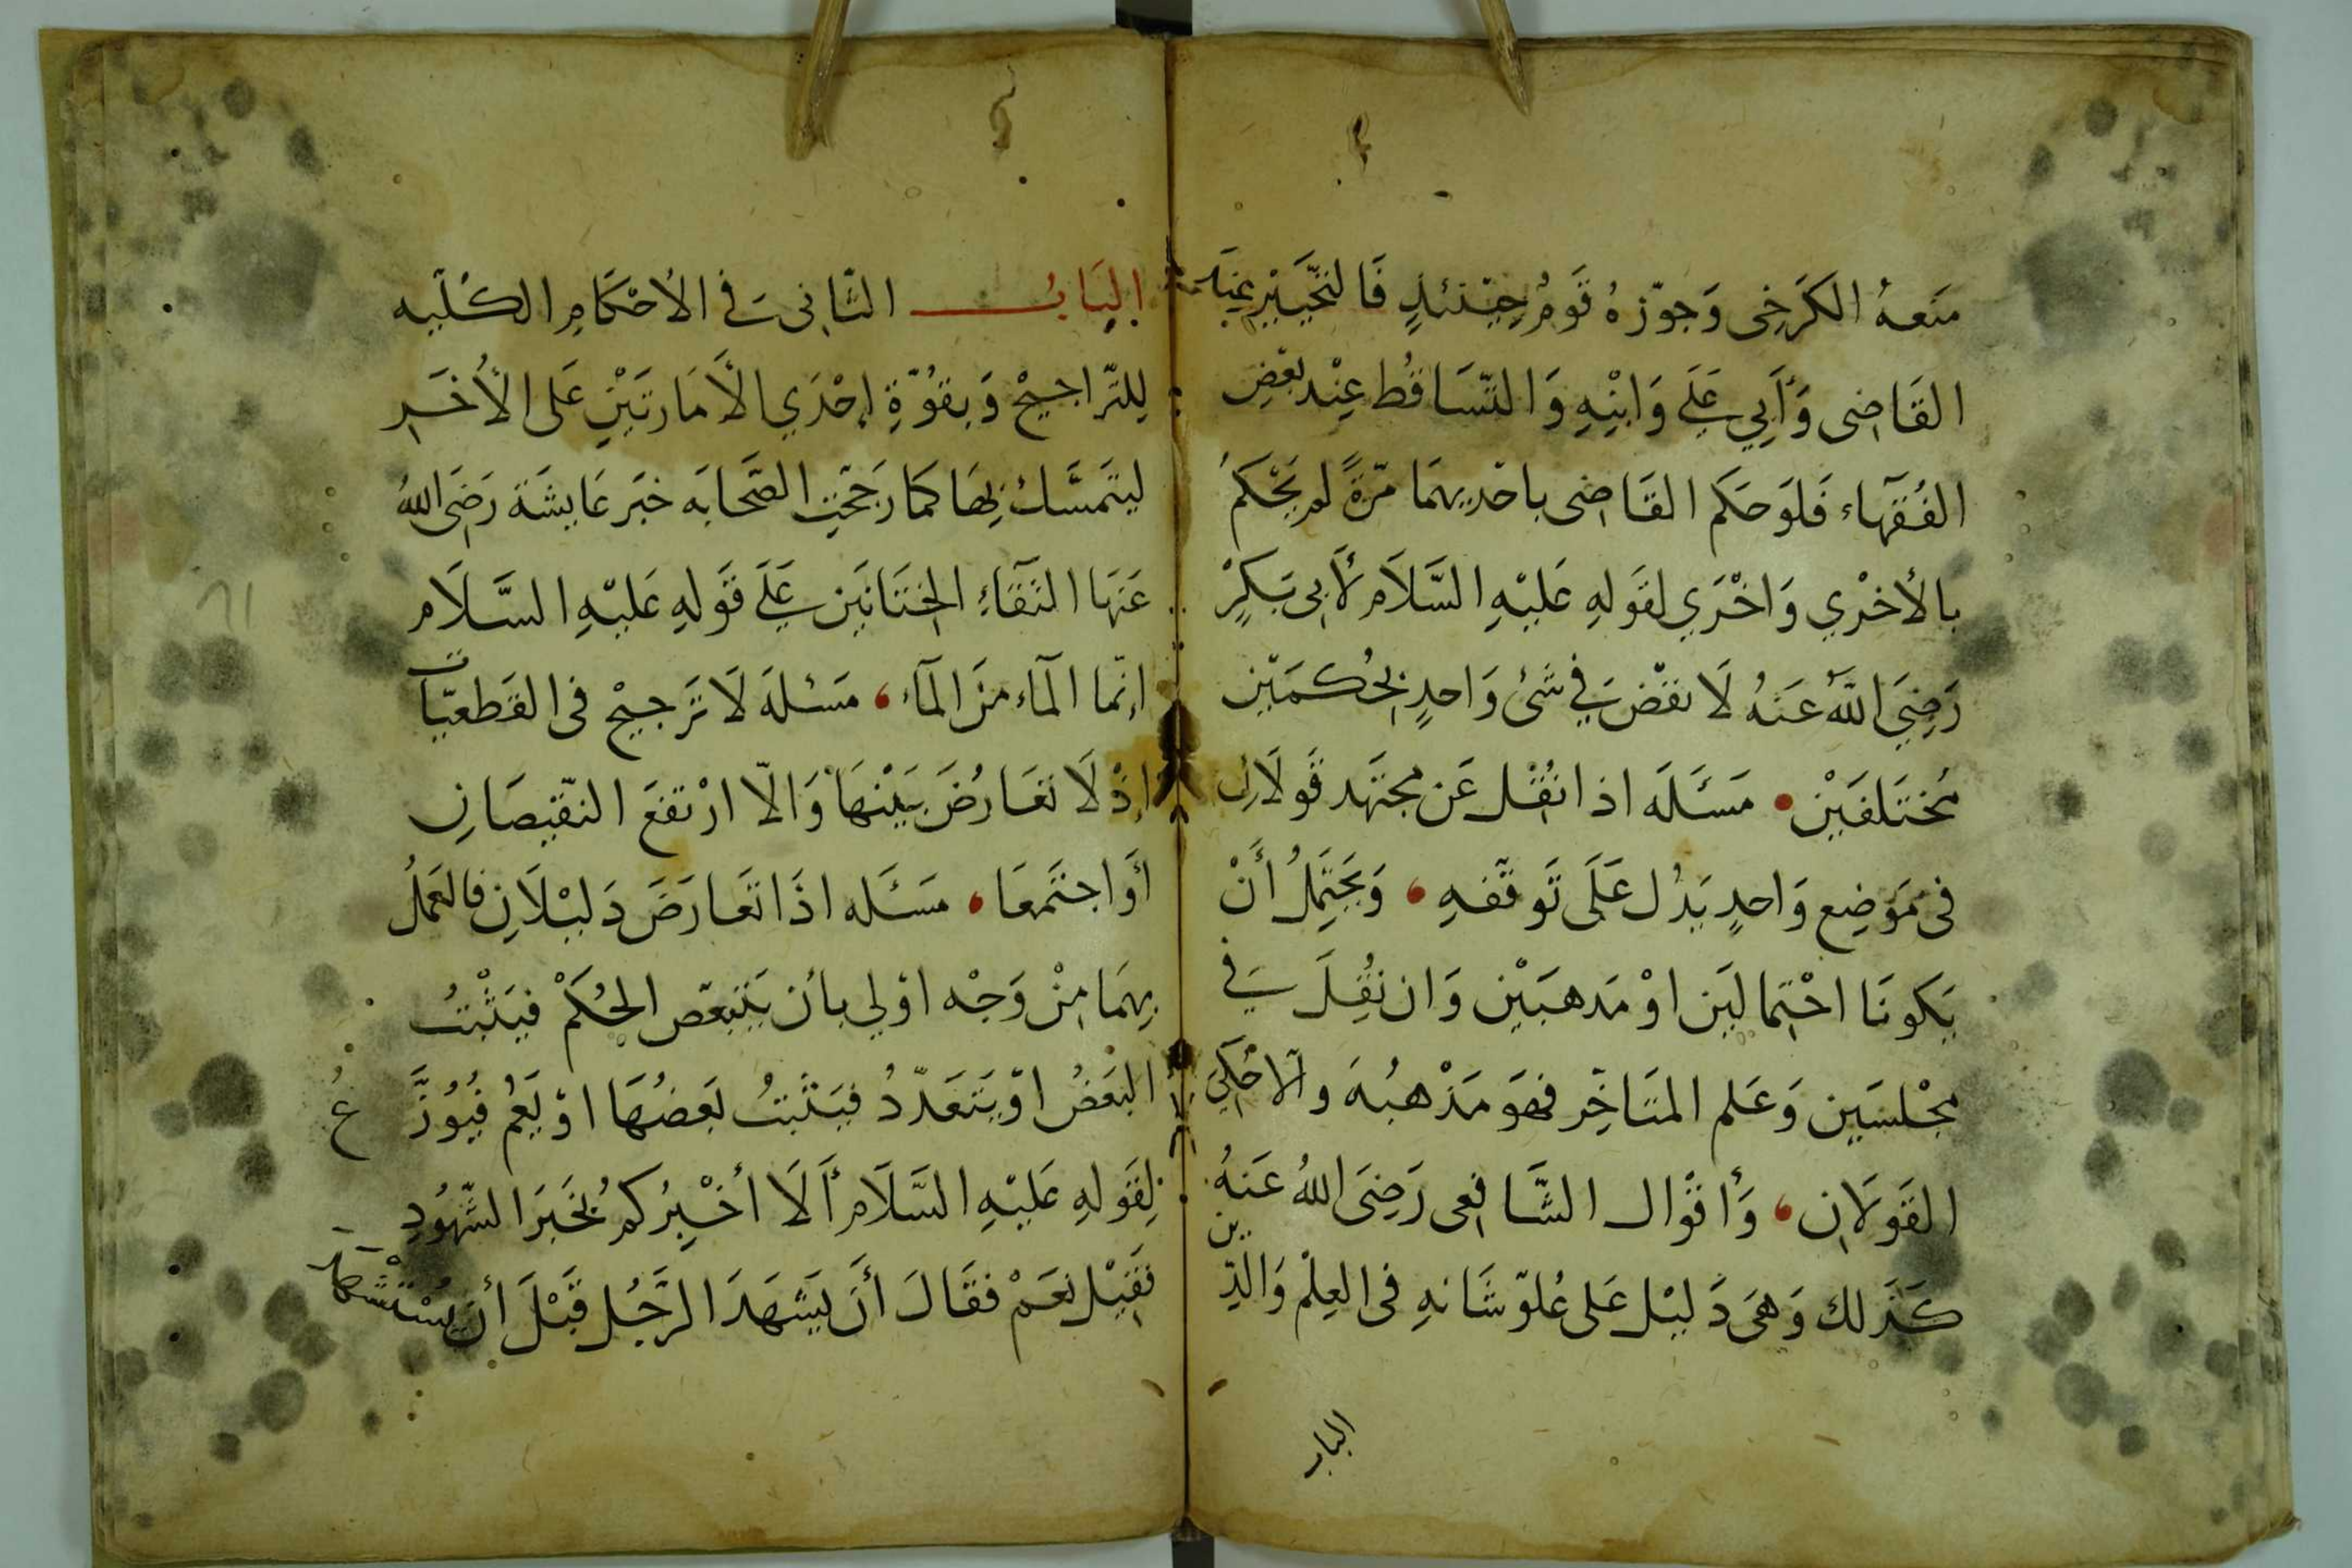 مَنَعهُ الكَرَخى وَجوّزهُ قَومٌ حِيْنَئذٍ فَالتخَّيْيرُ عِنْدَ
القَاضِى وَأَبِي عَلَي وَابْنِهِ وَالتّسَاقُط عِنْد بعْض
الفُقَهآء فَلوَحَكَم القَاضِى باحْديهمَا مَرّةً لم يَحْكمُ
بالأخْرَي وَاخْرَي لقَولهِ عَليْهِ السَّلَام لأَبِى بَكرٍ
رَضِيَ اللهُ عَنهُ لَا نقْض فِي شَئ وَاحدٍ بحُكمَيْن
مُخْتَلفَيْن • مَسَئَلَه اذا نُقْل عَن مجتَهَد قَولَانِ
فى مَوَضِع وَاحدٍ يَدُل عَلَى تَوقّفهِ ، وَيَحتَمِلُ أَنْ
يَكونَا احْتِمالَين اوْ مَدهبَيْن وَان نُقِلَ فِي
مجْلسَين وَعَلم المتَاخِّر فهَو مَذْهبُهَ والّا حُكِيَ
القَولَانِ ، وَأقَوال الشَّافِعى رَضِىَ اللهُ عَنهُ
كَذَلك وَهىَ دَليْل عَلى عُلوّ شَانهِ فى العِلْم وَالدّين
الباب
البَابُ الثَّانِى فِي الأحْكَامِ الكُلّيه
لِلتّراجِيحْ وَبقُوّةِ إحْدَي الأَمَارتَيْنِ عَلى الأخَر
ليتَمسَّك بِهَا كمَا رَجَحّتِ الصَّحابَه خبَر عَايشَة رَضىَ اللهُ
عَنهَا التقَآءِ الخِتَانَين عَلَى قَولهِ عَليْهِ السَّلَام
إنّما المآء منَ المآء ، مَسئلَه لَا تَرجيْح فى القَطعيّات
إذْ لَا تعَارُضَ بَيْنهَا وَالّا ارْتفعَ النقّيصَانِ
أَو اجتَمعَا ، مَسَئَله اذَا تعَارَضَ دَليْلَانِ فالعَملُ
بِهمَا مِنْ وَجْه اوْلي بأن يَتَبعّض الحُكمْ فيَثْبتُ
البَعضُ اوْ يتَعَدّدُ فيَثْبتُ بَعضُهَا اوْ يَعُم فيُوُزَّعُ
لِقَولهِ عَليْهِ السَّلَام أَلَا أخْبِرُكم بُخَيرَ الشّهُودِ
فقِيْل نعَمْ فقَالَ أَن يَشهَدَ الرَّجُل قَبْلَ أن يُسْتَشهَد